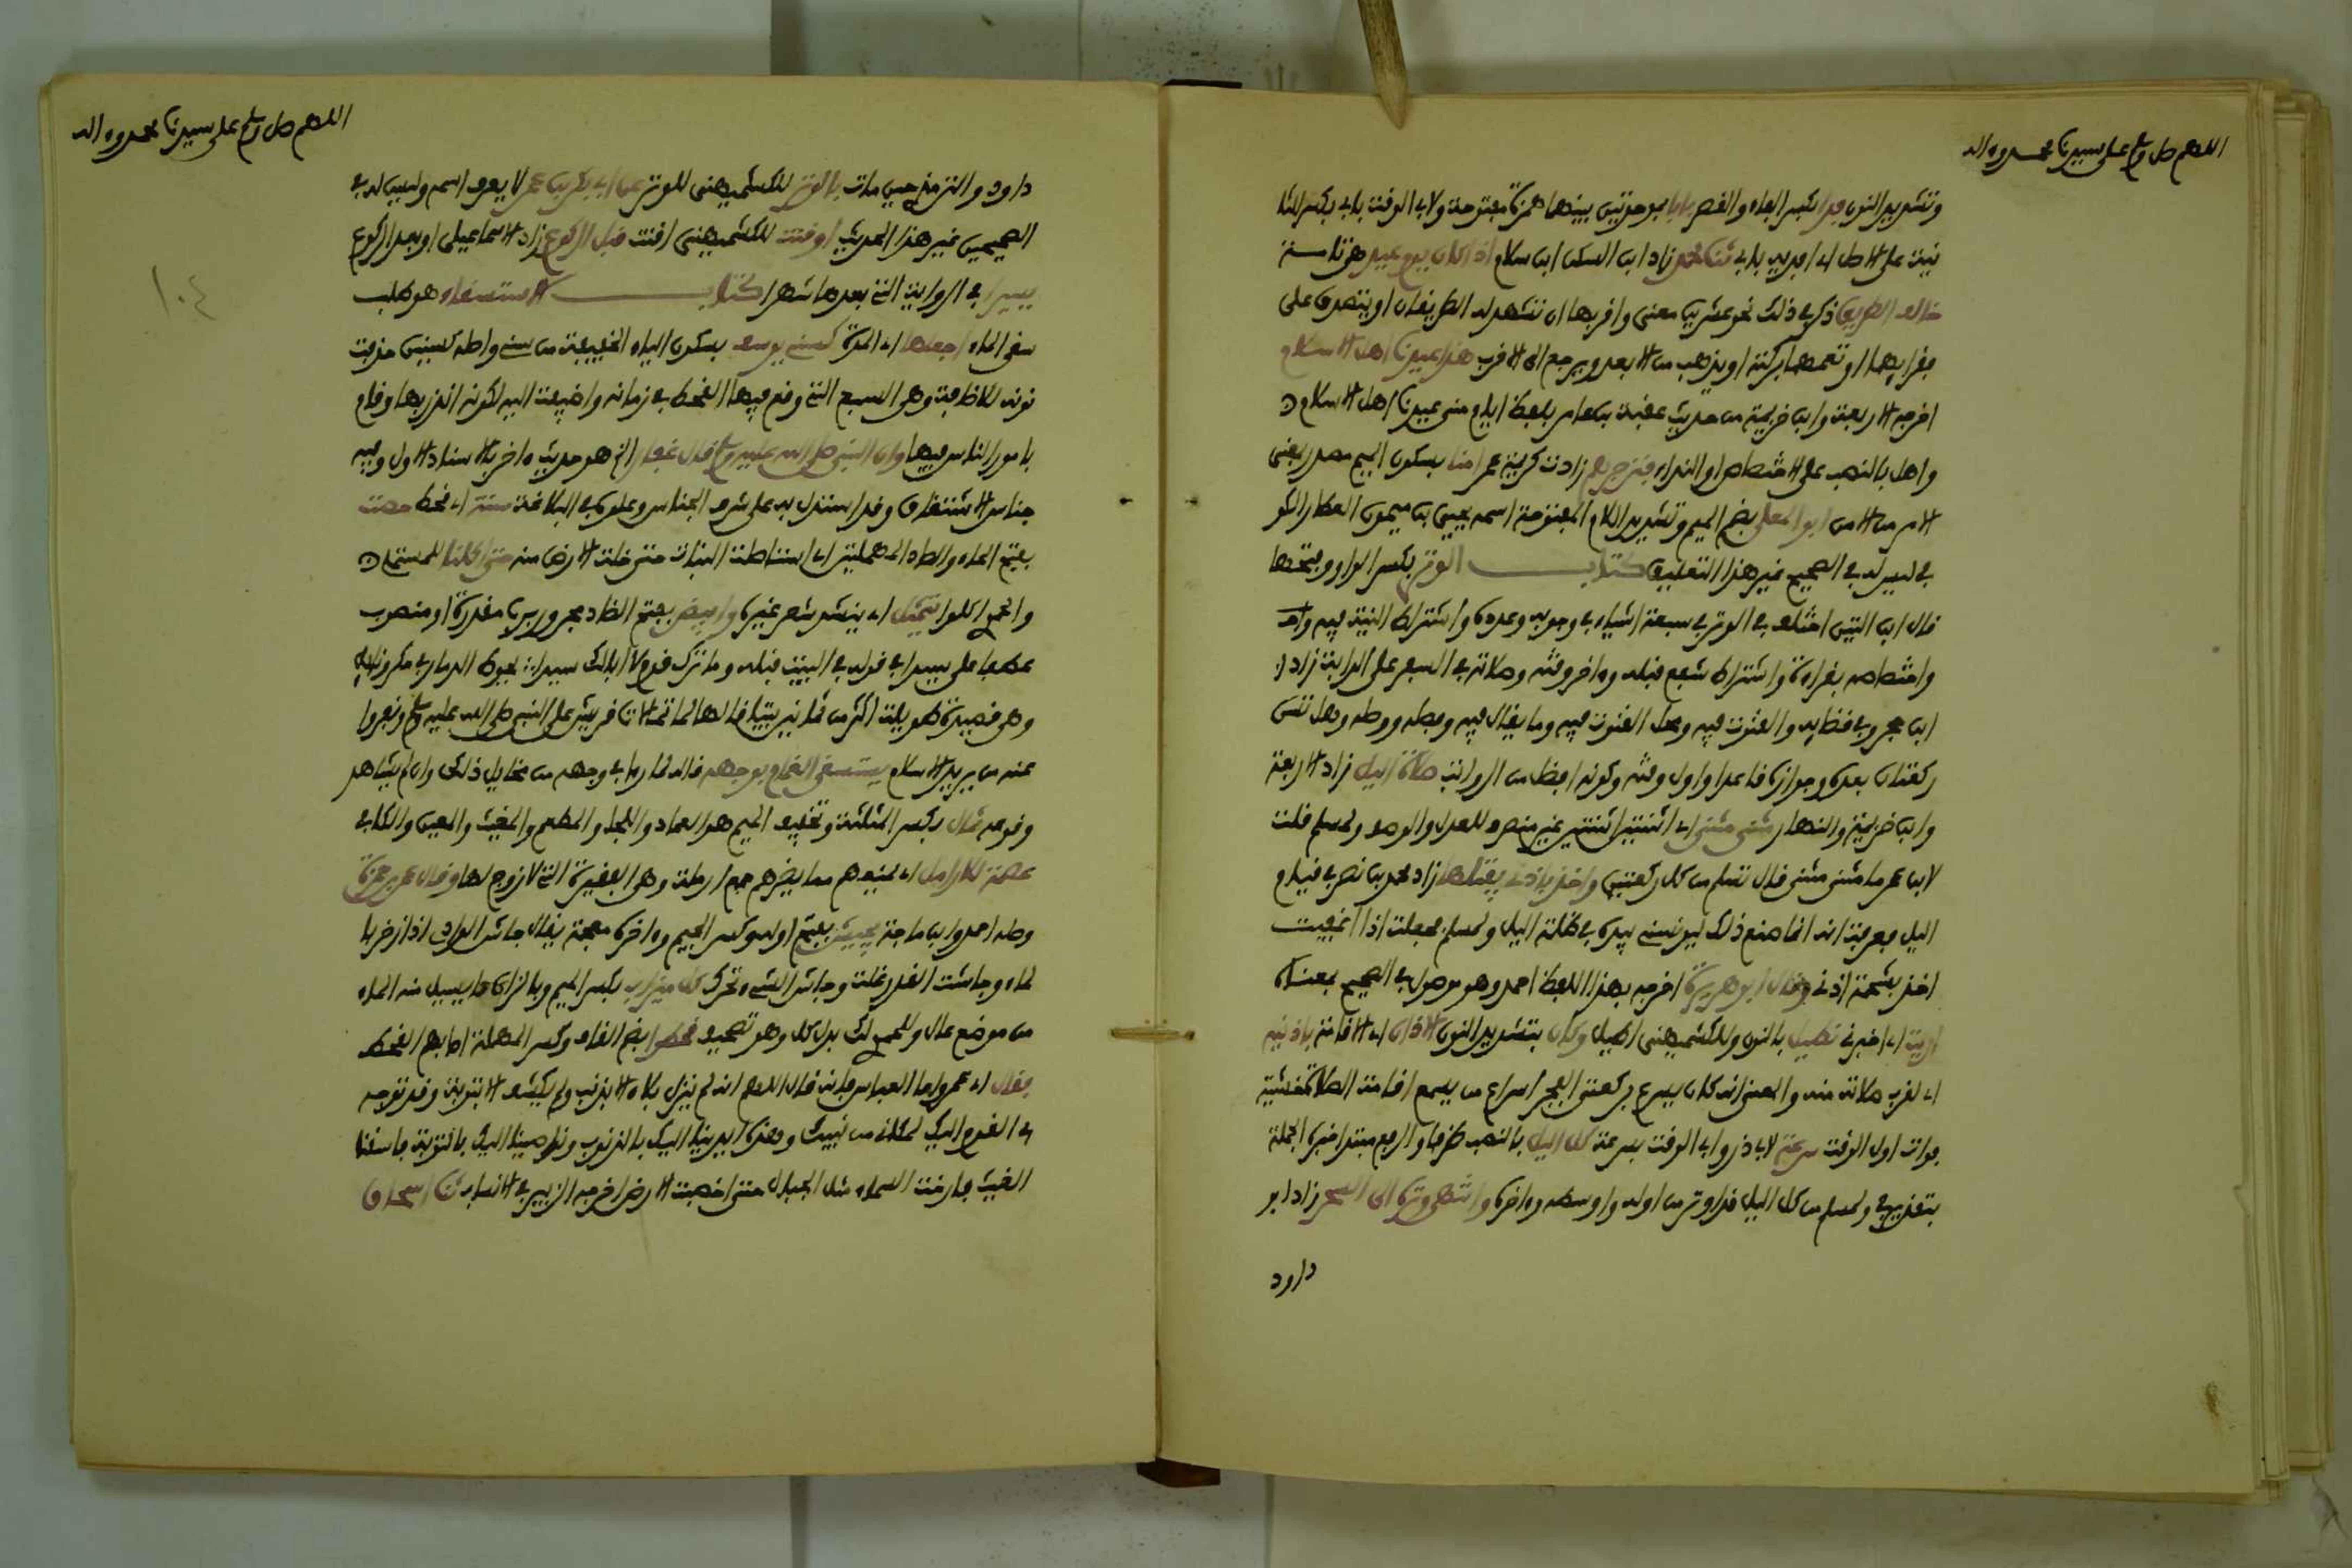 اللهم صل وسلم على سيدنا محمد وءاله
وتشديد النون فدا بكسر الفاء والقصر يابا بموحدتين بينهما همزة مفتوحة ولابي الوقت بابي بكسر الثا
نية على الاصل اي افديه بابي ثنا محمد زاد ابن السكن ابن سلام اذا كان يوم عيد هي تامة
خالف الطريق ذكر في ذلك نحو عشرين معنى واقربها ان تشهد له الطريقان او يتصدق على
فقرايهما او تعمهما بركته او يذهب من الابعد ويرجع الى الاقرب هذا عيدنا اهل الاسلام
اخرجه الاربعة وابن خزيمة من حديث عقبة بن عامر بلفظ ايام منى عيدنا اهل الاسلام
واهل بالنصب على الاختصاص او النداء فزجرهم زادت كريمة عمر امنا بسكون الميم مصدر يعني
الامر من الامن ابو المعلى بضم الميم وتشديد اللام المفتوحة اسمه يحيى بن ميمون العطار الكو
في ليس له في الصحيح غير هذا التعليق كتاب الوتر بكسر الواو وبفتحها
قال ابن التين اختلف في الوتر في سبعة اشياء في وجوبه وعدده واشتراط النية فيه واخـ
واختصاصه بقراءة واشتراط شفع قبله وءاخر وقته وصلاته في السفر على الدابة زاد
ابن حجر وفي قضايه والقنوت فيه ومحل القنوت فيه وما يقال فيه وفصله ووصله وهل تسن
ركعتان بعده وجوازه قاعدا واول وقته وكونه افضل من الرواتب صلاة الليل زاد الاربعة
وابن خزيمة والنهار مثنى مثنى اي اثنتين اثنتين غير منصرف للعدل والوصف ولمسلم قلت
لابن عمر ما مثنى مثنى قال تسلم من كل ركعتين واخذ باذني يفتلها زاد محمد بن نصر في قيام
الليل فعرفت انه انما صنع ذلك ليونسني بيده في ظلمة الليل ولمسلم فجعلت اذا اغفيت
اخذ بشحمة اذني وقال ابو هريرة اخرجه بهذا اللفظ احمد وهو موصول في الصحيح بمعناه
اريت اي اخبرني نطيل بالنون وللكشميهني اطيل وكان بتشديد النون الاذان اي الاقامة باذنيه
اي لقرب صلاته منه والمعنى انه كان يسرع بركعتي الفجر اسراع من يسمع اقامة الصلاة خشية
فوات اول الوقت سرعة لابي ذر وابي الوقت بسرعة كل الليل بالنصب ظرفا والرفع مبتدا خبره الجملة
بتقدير في ولمسلم من كل الليل قد اوتر من اوله واوسطه وءاخره وانتهى وتره الى السحر زاد ابو
داود
اللهم صل وسلم على سيدنا محمد وءاله
داود والترمذي حين مات بالوتر للكشميهني للوتر عن ابي بكر بن عمر لا يعرف اسمه وليس له في
الصحيحين غير هذا الحديث اوقنت للكشميهني اقنت قبل الركوع زاد الاسماعيلي او بعد الركوع
يسيرا في الرواية التي بعدها شهرا كتاب الاستسقاء هو طلب
سقي الماء اجعلها اي المدة كسني يوسف بسكون الياء الخفيفة من سني واصله كسنين حذفت
نونه للاضافة وهي السبع التي وقع فيها القحط في زمانه واضيفت اليه لكونه انذر بها وقام
بامور الناس فيها وان النبي صلى الله عليه وسلم قال غفار الخ هو حديث ءاخر بالاسناد الاول وفيه
جناس الاشتقاق وقد استدل به على شرف الجناس وعلوه في البلاغة سنة اي قحط حصت
بفتح الحاء والصاد المهملتين اي استاصلت النبات حتى خلت الارض منه حتى اكلنا للمستملي
والحموي اكلوا يتمثل اي ينشد شعر غيره وابيض بفتح الضاد مجرور برب مقدرة او منصوب
عطفا على سيدا في قوله في البيت قبله وما ترك قوم لا ابا لك سيدا يحوط الذمار في مكر ونايل
وهي قصيدة طويلة اكثر من ثمانين بيتا قالها لما تمالات قريش على النبي صلى الله عليه وسلم ونفروا
عنه من يريد الاسلام يستسقى الغمام بوجهه قاله لما راى في وجهه من مخايل ذلك وان لم يشاهد
وقوعه ثمال بكسر المثلثة وتخفيف الميم هو العماد والملجا والمطعم والمغيث والمعين والكافي
عصمة للارامل اي يمنعهم مما يضرهم جمع ارملة وهي الفقيرة التي لا زوج لها وقال عمر بن حمزة
وصله احمد وابن ماجة يجيش بفتح اوله وكسر الجيم وءاخره معجمة يقال جاش الوادي اذا زخر با
لماء وجاشت القدر غلت وجاش الشيء تحرك كل ميزاب بكسر الميم وبالزاي ما يسيل منه الماء
من موضع عال وللحموي لك بدل كل وهو تصحيف قحطوا بضم القاف وكسر المهملة اصابهم القحط
فقال اي عمر واما العباس فانه قال اللهم انه لم ينزل بلاء الا بذنب ولم يكشف الا بتوبة وقد توجه
بي القوم اليك لمكاني من نبيك وهذه ايدينا اليك بالذنوب ونواصينا اليك بالتوبة فاسقنا
الغيث فارخت السماء مثل الجبال حتى اخصبت الارض اخرجه الزبير في الانساب ثنا اسحاق
١٠٤